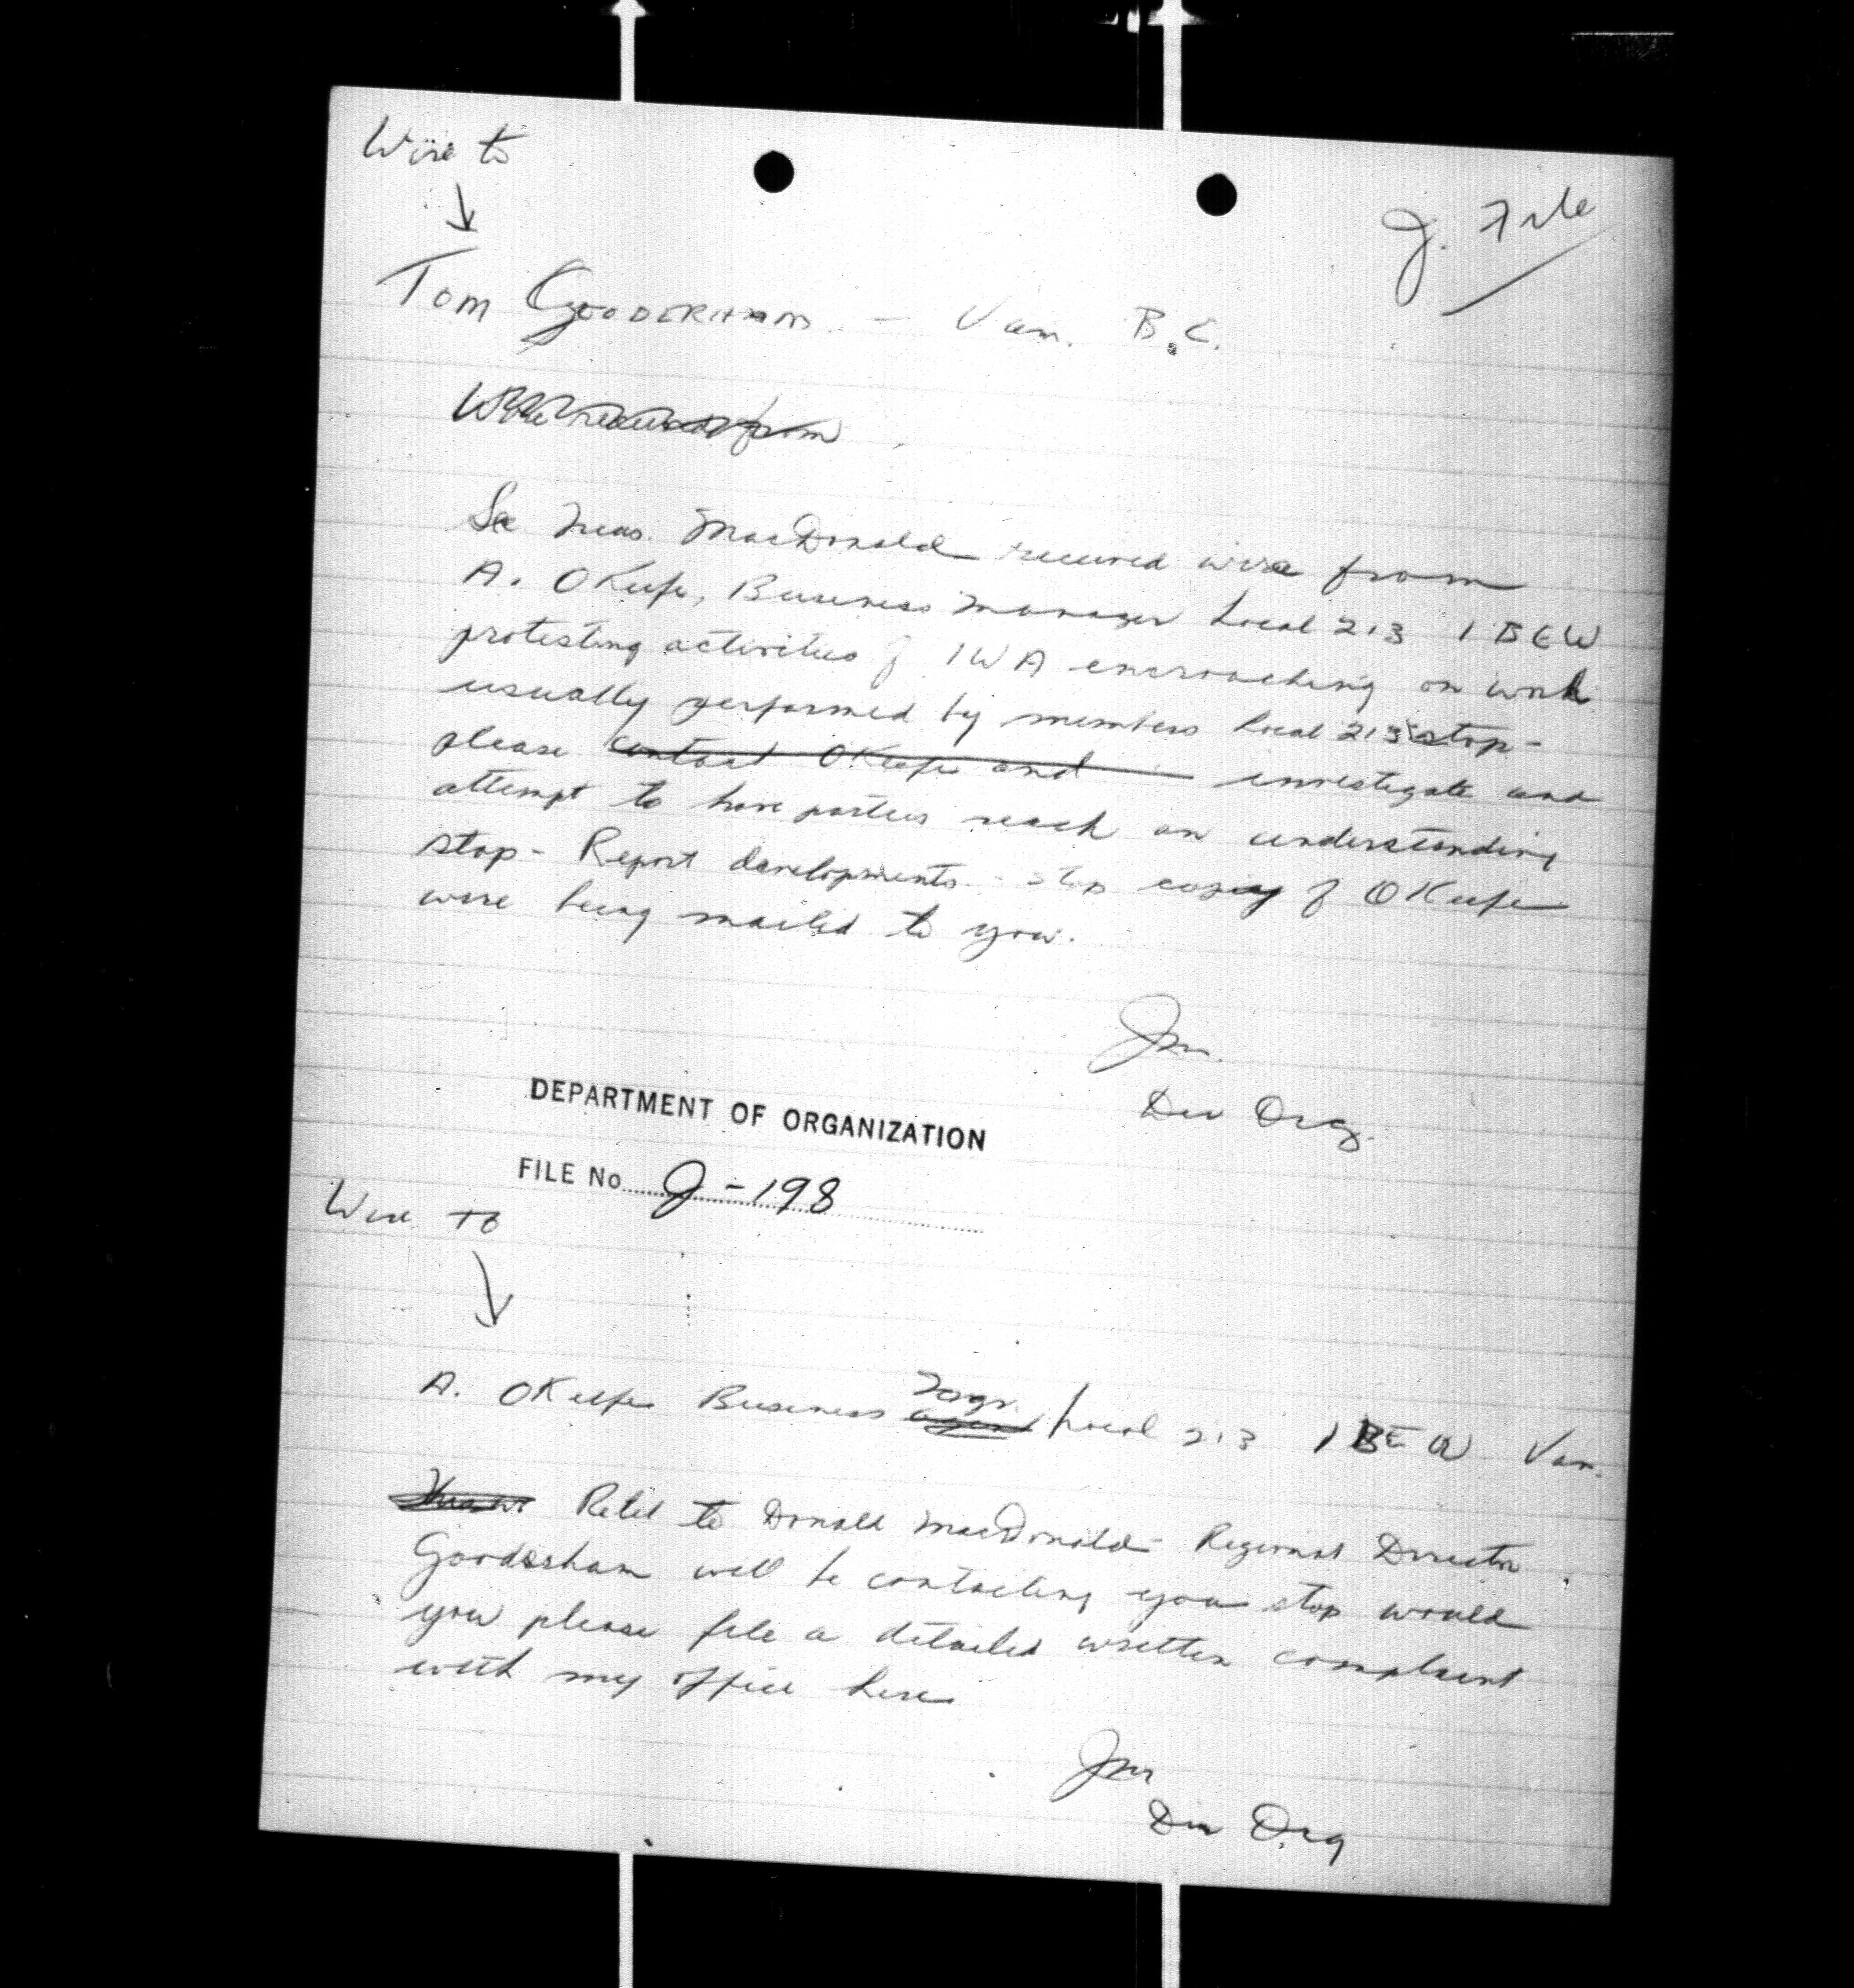 Wire to
J. File
Tom Gooderham - Van. B.C.
Wire received from
Sec Treas. MacDonald received wire from
A. OKeefe, Business Manager Local 213 IBEW
protesting activities of IWA encroaching on work
usually performed by members Local 213 stop-
please contact OKeefe and investigate and
attempt to have parties reach an understanding
stop - Report developments - stop copy of OKeefe
wire being mailed to you.
Jm.
Dir Org.
DEPARTMENT OF ORGANIZATION
FILE No J-198
Wire to
A. OKeefe Business agent Mgr. Local 213 IBEW Van.
Retel to Donald MacDonald - Regional Director
Gooderham will be contacting you stop would
you please file a detailed written complaint
with my office here
Jm
Dir Org